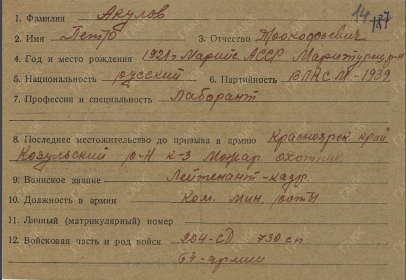 14
187
1. Фамилия Акулов
2. Имя Петр 3. Отчество Прокофьевич
4. Год и место рождения 1921г Марийс. АССР Маритурецк. р-н
5. Национальность русский 6. Партийность ВЛКСМ-1939
7. Профессия и специальность Лаборант
8. Последнее местожительство до призыва в армию Красноярск край
Козульский р-н к-з охотник
9. Воинское звание Лейтенант-кадр
10. Должность в армии Ком. мин. роты
11. Личный (матрикулярный) номер
12. Войсковая часть и род войск 204-сд 730 сп
64-армии